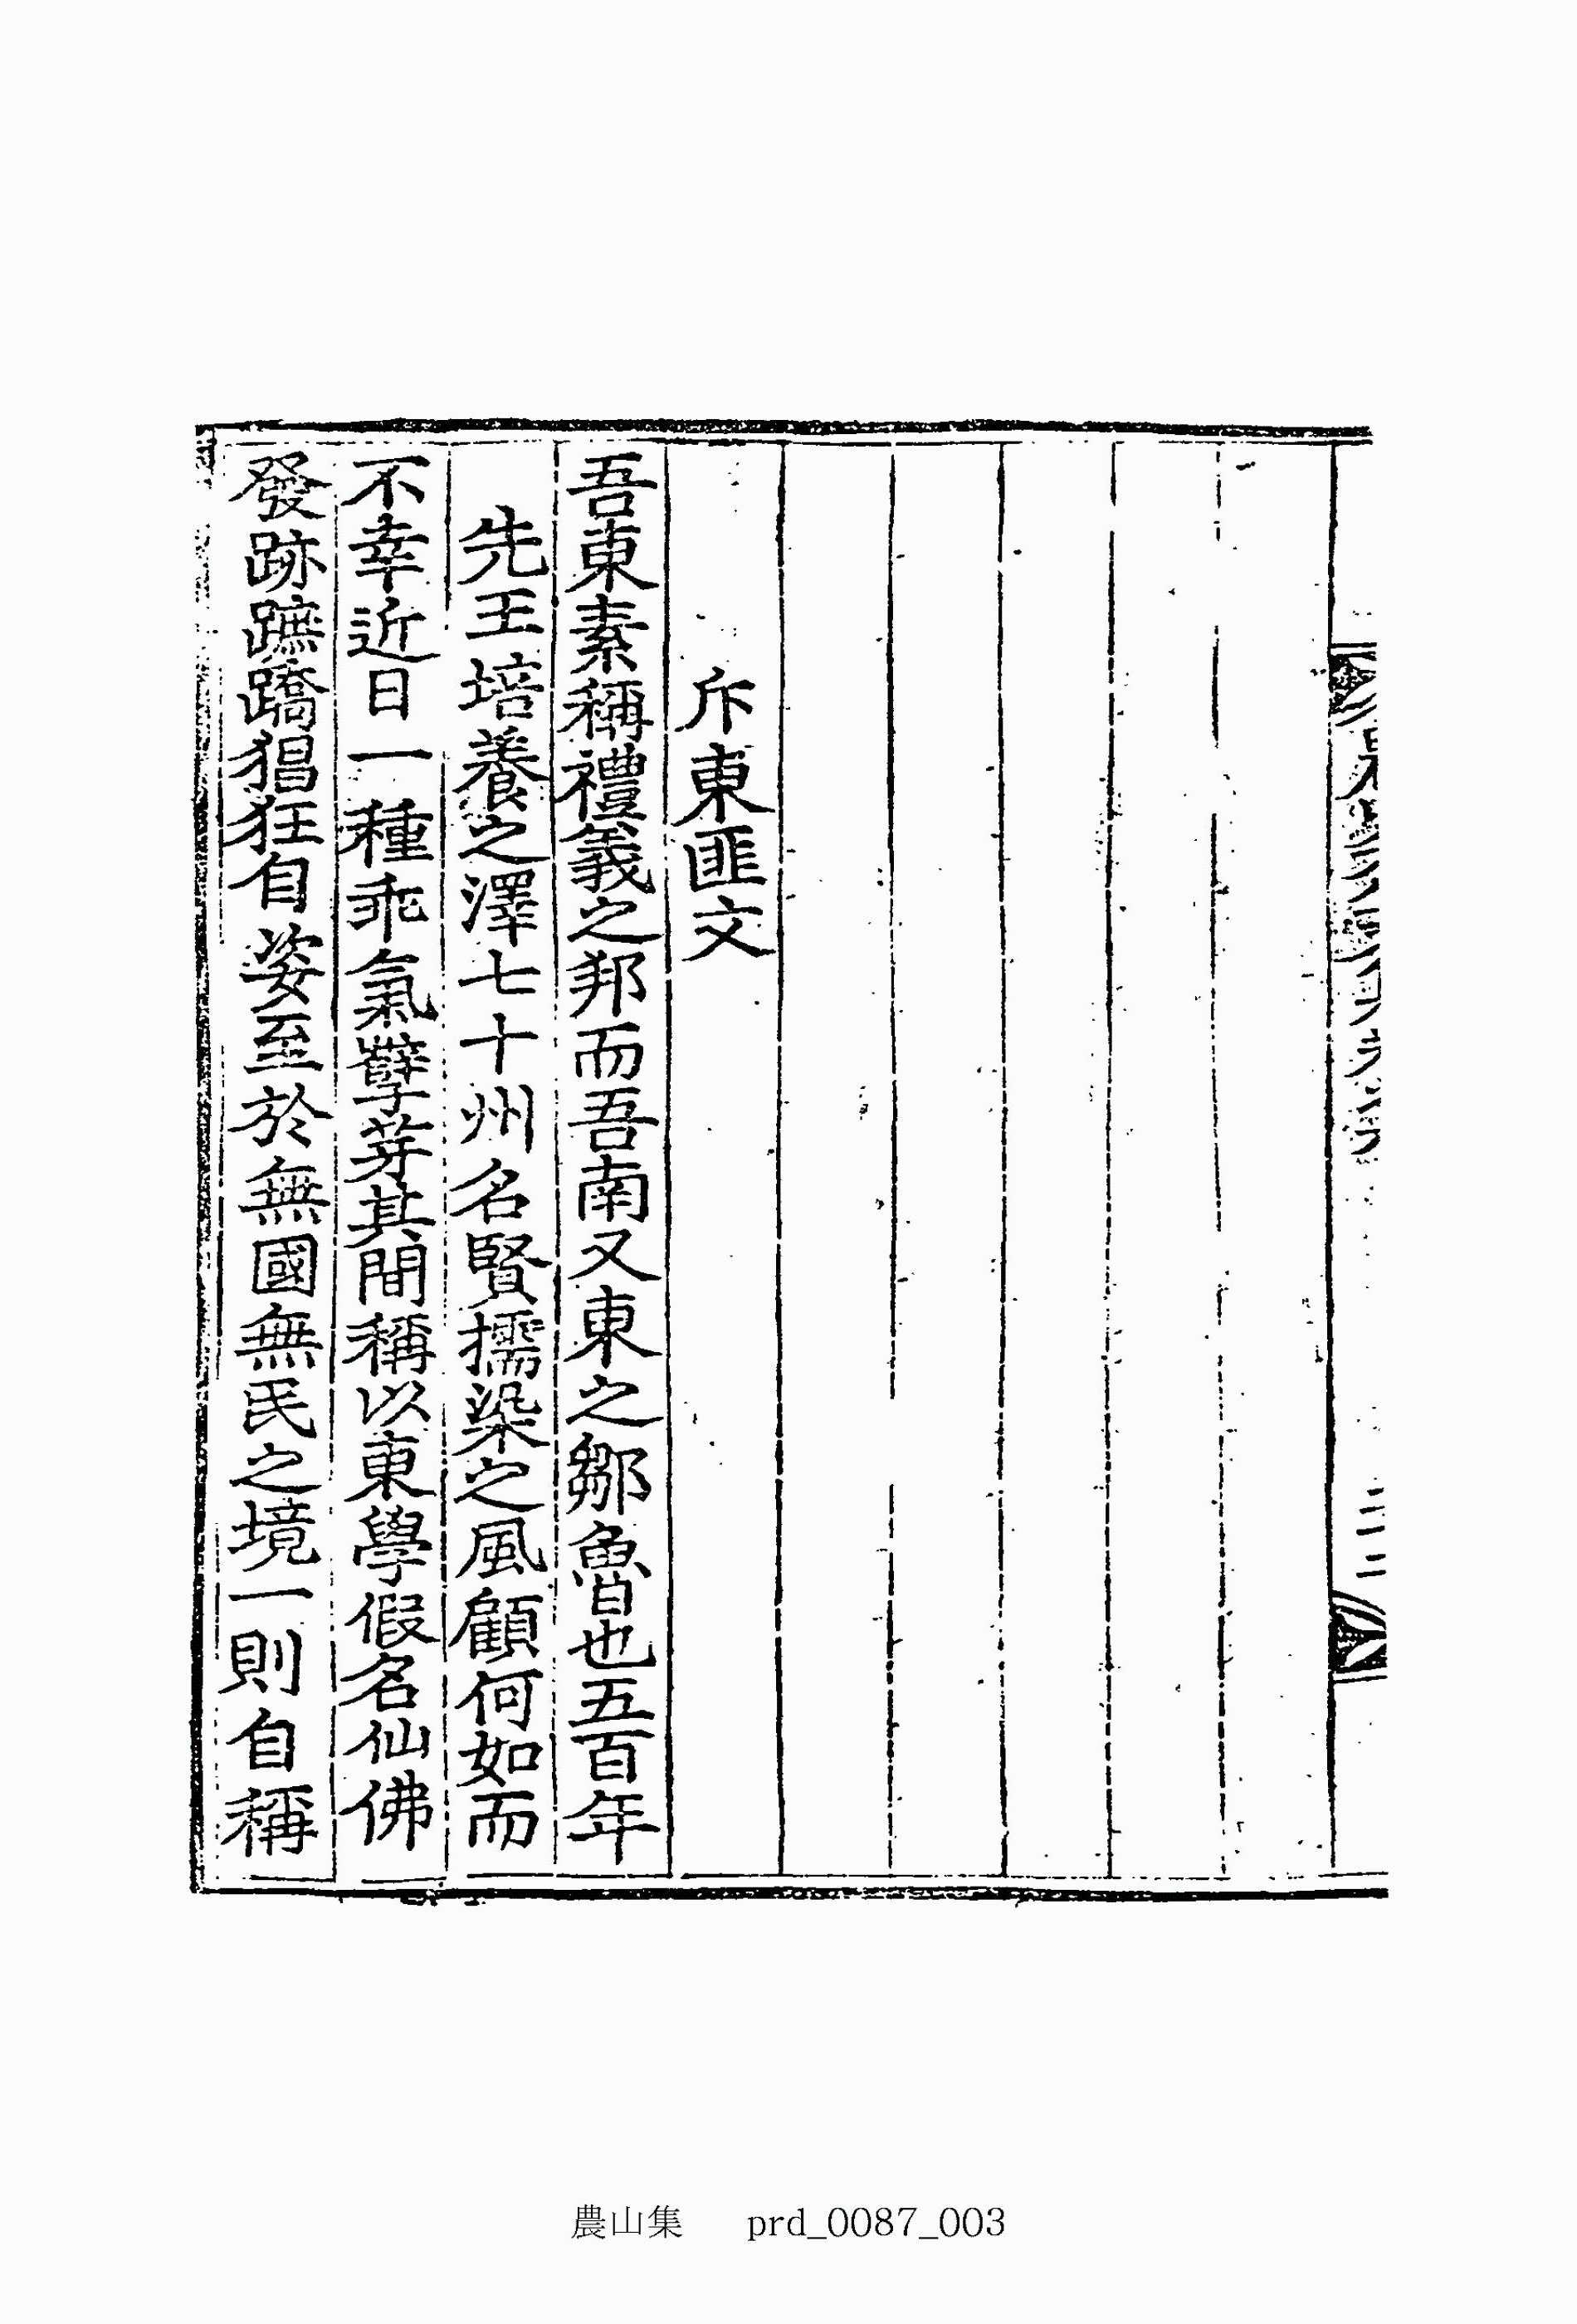 斥東匪文
吾東素稱禮義之邦而吾南又東之鄒魯也五百年
先王培養之澤七十州名賢擩染之風顧何如而
不幸近日一種乖氣孽芽其間稱以東學假名仙佛
發跡蹠蹻猖狂自姿至於無國無民之境一則自稱
農山集 prd_0087_003